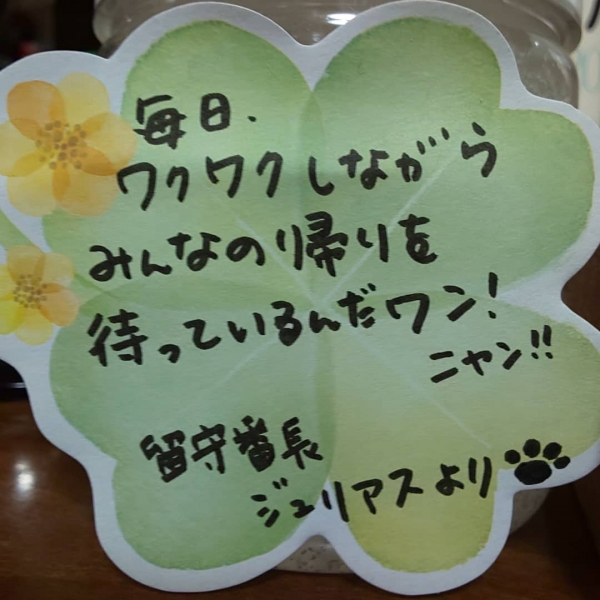 毎日、
ワクワクしながら
みんなの帰りを
待っているんだワン!
ニャン!!
留守番長
ジュリアスより